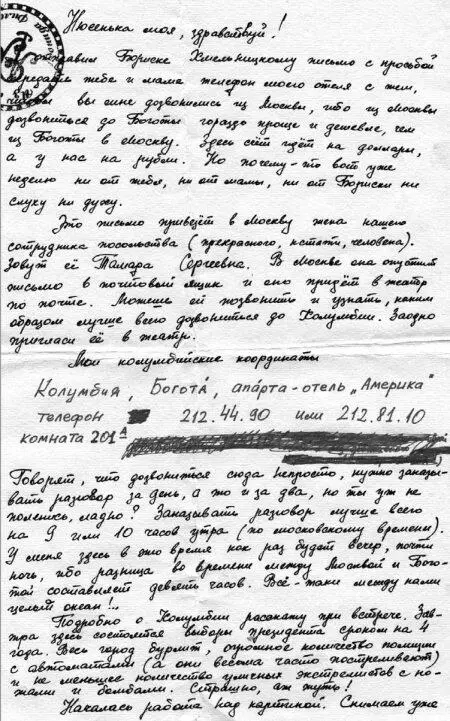 Нюсенька моя, здравствуй!
отправил Бориске Хмельницкому письмо с просьбой
передать тебе и маме телефон моего отеля с тем,
чтобы вы мне дозвонились из Москвы, ибо из Москвы
дозвониться до Боготы гораздо проще и дешевле, чем
из Боготы в Москву. Здесь счёт идёт на доллары,
а у нас на рубли. Но почему-то вот уже
неделю ни от тебя, ни от мамы, ни от Бориски ни
слуху ни духу.
Это письмо привезёт в Москву жена нашего
сотрудника посольства (прекрасного, кстати, человека).
Зовут её Тамара Сергеевна. В Москве она опустит
письмо в почтовый ящик и оно придёт в театр
по почте. Можешь ей позвонить и узнать, каким
образом лучше всего дозвониться до Колумбии. Заодно
пригласи её в театр.
Мои колумбийские координаты
Колумбия, Богота, апарта-отель „Америка"
телефон 212.44.90 или 212.81.10
комната 201А
Говорят, что дозвониться сюда непросто, нужно заказы-
вать разговор за день, а то и за два, но ты уж не
поленись, ладно? Заказывать разговор лучше всего
на 9 или 10 часов утра (по московскому времени).
У меня здесь в это время как раз будет вечер, почти
ночь, ибо разница во времени между Москвой и Бого-
той составляет девять часов. Всё-таки между нами
целый океан!..
Подробно о Колумбии расскажу при встрече. Зав-
тра здесь состоятся выборы президента сроком на 4
года. Весь город бурлит, огромное количество полиции
с автоматами (а они весьма часто постреливают)
и не меньшее количество уличных экстремистов с но-
жами и бомбами. Страшно, аж жуть!
Началась работа над картиной. Снимаем уже